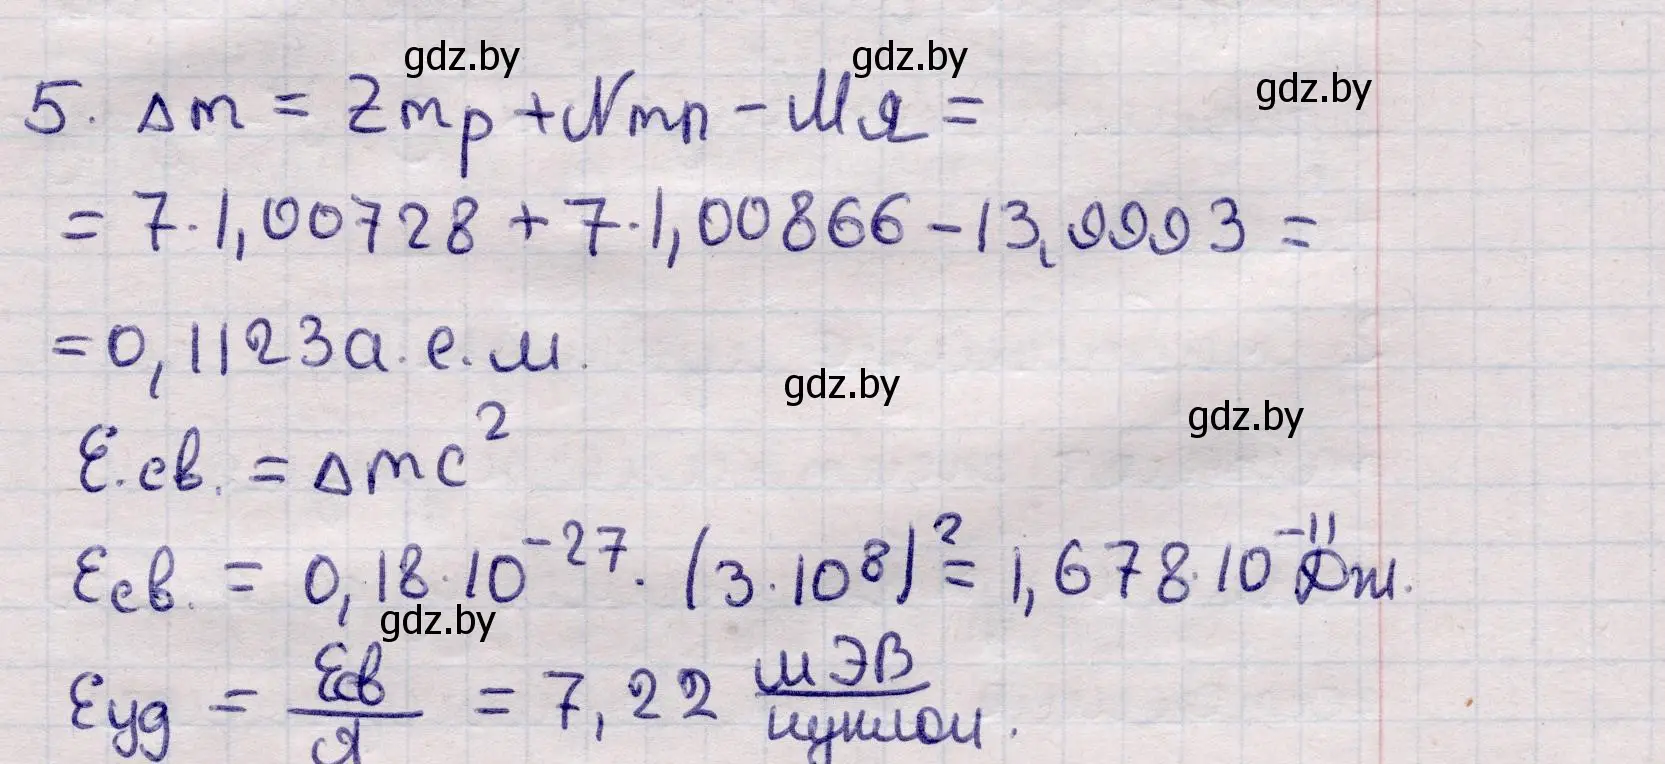 gdz.by gdz.by gdz.by
5. Δm = Zmp + Nmn - Mя =
= 7·1,00728 + 7·1,00866 - 13,9993 =
= 0,1123 а.е.м.
gdz.by gdz.by
E.св. = Δmc²
Eсв. = 0,18·10⁻²⁷·(3·10⁸)² = 1,678·10⁻¹¹ Дж.
gdz.by
Eуд = Eсв/А = 7,22 мЭВ/нуклон.